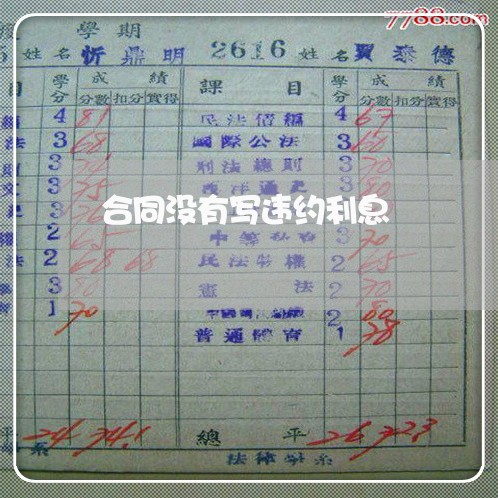 7788.com
學期
姓名 忻鼎明 2616 姓名 賈泰德
目 學分 成績 課目 學分 成績
分數 扣分 實得 分數 扣分 實得
4 81 民法債編 4 67
法 3 68 國際公法 3 60
3 刑法總則 3 70
文 3 75 西洋通史 3
合同没有写违约利息
2 65 3 70
法 2 68 68 民法物權 2 65
3 80 憲法 2 70
1 70 2 80
普通體育 1 78
平 24 74.1 總平 26 72.3
系 法律學系